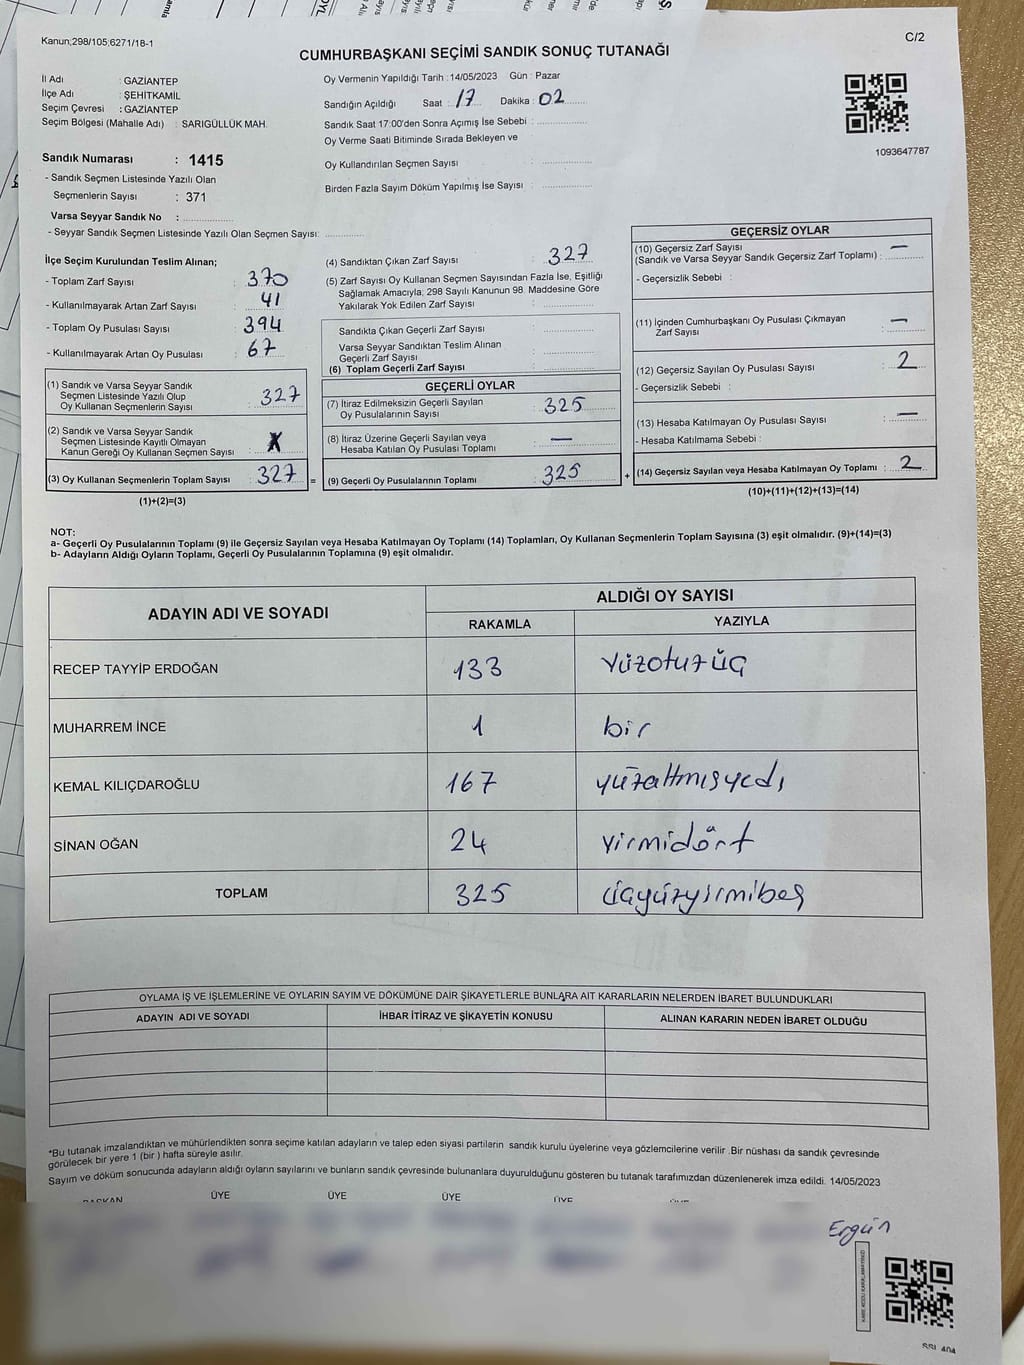 Kanun;298/105;6271/18-1
C/2
CUMHURBAŞKANI SEÇİMİ SANDIK SONUÇ TUTANAĞI
İl Adı : GAZİANTEP
İlçe Adı : ŞEHİTKAMİL
Seçim Çevresi : GAZİANTEP
Seçim Bölgesi (Mahalle Adı) : SARIGÜLLÜK MAH.
Oy Vermenin Yapıldığı Tarih : 14/05/2023 Gün : Pazar
Sandığın Açıldığı Saat : 17 Dakika : 02
Sandık Saat 17:00'den Sonra Açımış İse Sebebi :
Oy Verme Saati Bitiminde Sırada Bekleyen ve
Oy Kullandırılan Seçmen Sayısı :
Birden Fazla Sayım Döküm Yapılmış İse Sayısı :
1093647787
Sandık Numarası : 1415
- Sandık Seçmen Listesinde Yazılı Olan
Seçmenlerin Sayısı : 371
Varsa Seyyar Sandık No :
- Seyyar Sandık Seçmen Listesinde Yazılı Olan Seçmen Sayısı:
İlçe Seçim Kurulundan Teslim Alınan;
- Toplam Zarf Sayısı : 370
- Kullanılmayarak Artan Zarf Sayısı : 41
- Toplam Oy Pusulası Sayısı : 394
- Kullanılmayarak Artan Oy Pusulası : 67
(1) Sandık ve Varsa Seyyar Sandık
Seçmen Listesinde Yazılı Olup
Oy Kullanan Seçmenlerin Sayısı : 327
(2) Sandık ve Varsa Seyyar Sandık
Seçmen Listesinde Kayıtlı Olmayan
Kanun Gereği Oy Kullanan Seçmen Sayısı : X
(3) Oy Kullanan Seçmenlerin Toplam Sayısı : 327 =
(1)+(2)=(3)
(4) Sandıktan Çıkan Zarf Sayısı : 327
(5) Zarf Sayısı Oy Kullanan Seçmen Sayısından Fazla İse, Eşitliği
Sağlamak Amacıyla, 298 Sayılı Kanunun 98. Maddesine Göre
Yakılarak Yok Edilen Zarf Sayısı :
Sandıkta Çıkan Geçerli Zarf Sayısı :
Varsa Seyyar Sandıktan Teslim Alınan
Geçerli Zarf Sayısı :
(6) Toplam Geçerli Zarf Sayısı :
GEÇERLİ OYLAR
(7) İtiraz Edilmeksizin Geçerli Sayılan
Oy Pusulalarının Sayısı : 325
(8) İtiraz Üzerine Geçerli Sayılan veya
Hesaba Katılan Oy Pusulası Toplamı : —
(9) Geçerli Oy Pusulalarının Toplamı : 325 +
GEÇERSİZ OYLAR
(10) Geçersiz Zarf Sayısı —
(Sandık ve Varsa Seyyar Sandık Geçersiz Zarf Toplamı) :
- Geçersizlik Sebebi :
(11) İçinden Cumhurbaşkanı Oy Pusulası Çıkmayan
Zarf Sayısı : —
(12) Geçersiz Sayılan Oy Pusulası Sayısı : 2
- Geçersizlik Sebebi :
(13) Hesaba Katılmayan Oy Pusulası Sayısı : —
- Hesaba Katılmama Sebebi :
(14) Geçersiz Sayılan veya Hesaba Katılmayan Oy Toplamı : 2
(10)+(11)+(12)+(13)=(14)
NOT:
a- Geçerli Oy Pusulalarının Toplamı (9) ile Geçersiz Sayılan veya Hesaba Katılmayan Oy Toplamı (14) Toplamları, Oy Kullanan Seçmenlerin Toplam Sayısına (3) eşit olmalıdır. (9)+(14)=(3)
b- Adayların Aldığı Oyların Toplamı, Geçerli Oy Pusulalarının Toplamına (9) eşit olmalıdır.
ADAYIN ADI VE SOYADI
ALDIĞI OY SAYISI
RAKAMLA YAZIYLA
RECEP TAYYİP ERDOĞAN 133 Yüzotuzüç
MUHARREM İNCE 1 bir
KEMAL KILIÇDAROĞLU 167 yüzaltmışyedi
SİNAN OĞAN 24 Yirmidört
TOPLAM 325 üçyüzyirmibeş
OYLAMA İŞ VE İŞLEMLERİNE VE OYLARIN SAYIM VE DÖKÜMÜNE DAİR ŞİKAYETLERLE BUNLARA AİT KARARLARIN NELERDEN İBARET BULUNDUKLARI
ADAYIN ADI VE SOYADI İHBAR İTİRAZ VE ŞİKAYETİN KONUSU ALINAN KARARIN NEDEN İBARET OLDUĞU
*Bu tutanak imzalandıktan ve mühürlendikten sonra seçime katılan adayların ve talep eden siyasi partilerin sandık kurulu üyelerine veya gözlemcilerine verilir. Bir nüshası da sandık çevresinde
görülecek bir yere 1 (bir) hafta süreyle asılır.
Sayım ve döküm sonucunda adayların aldığı oyların sayılarını ve bunların sandık çevresinde bulunanlara duyurulduğunu gösteren bu tutanak tarafımızdan düzenlenerek imza edildi. 14/05/2023
BAŞKAN ÜYE ÜYE ÜYE ÜYE
Ergün